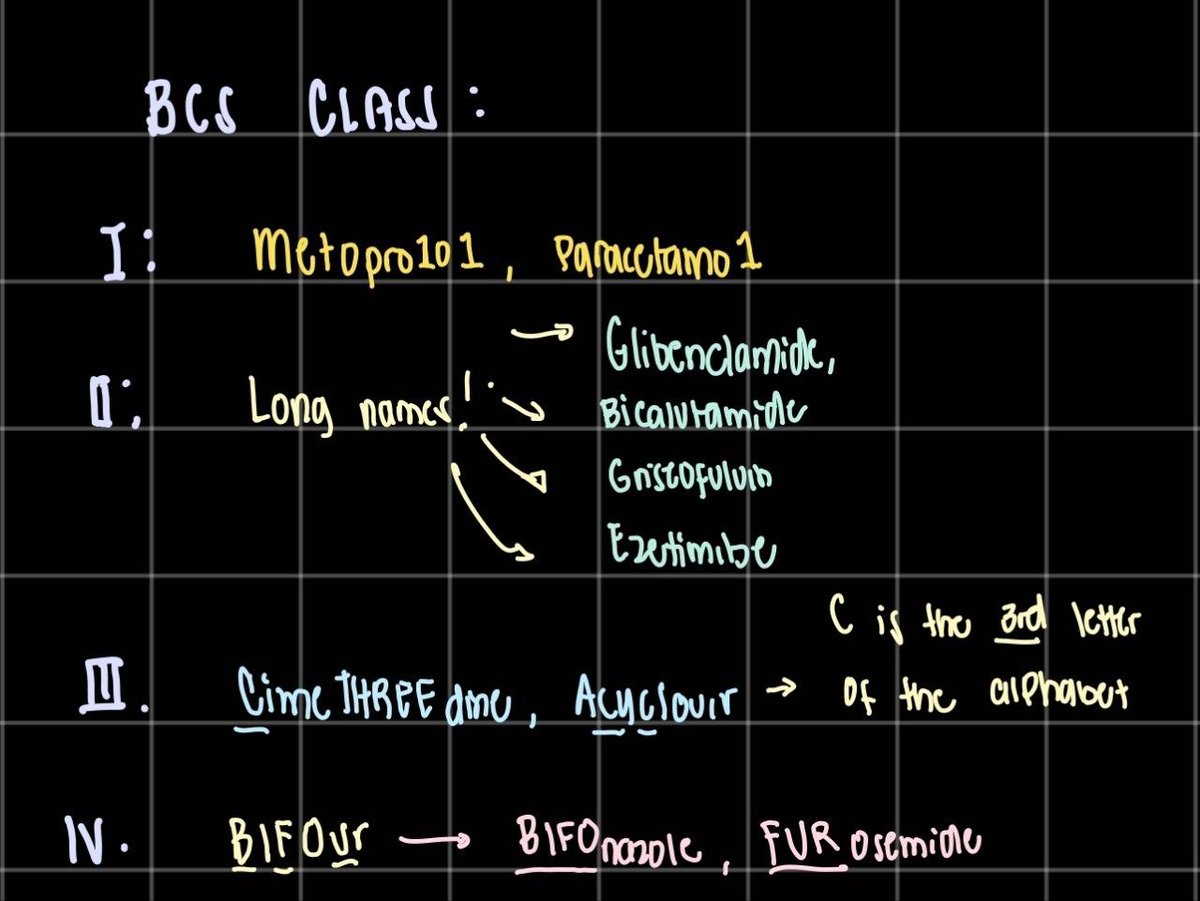 BCS CLASS:
I: Metopro101, Paracetamo1
II: Long names! → Glibenclamide,
Bicalutamide
Griseofulvin
Ezetimibe
III. CimeTHREEdine, Acyclovir → C is the 3rd letter
of the alphabet
IV. BIFOur → BIFOnazole, FURosemide